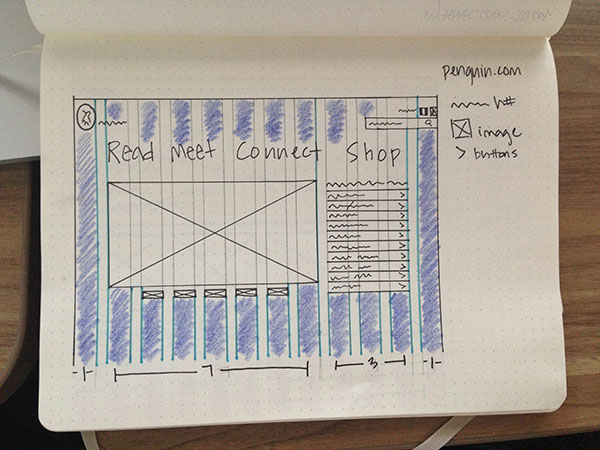 penguin.com
h#
image
> buttons
Read Meet Connect Shop
1 7 3 1